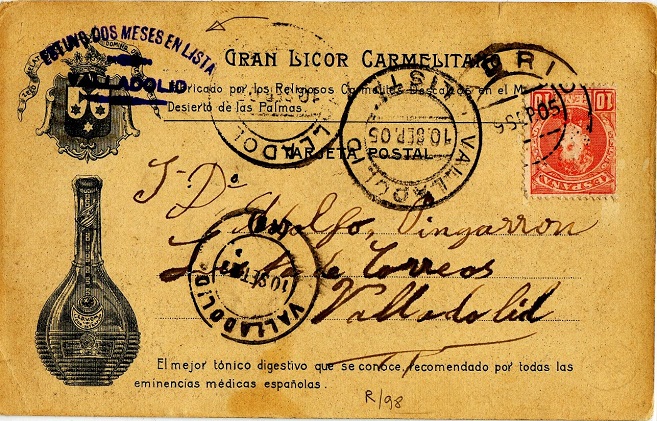 ESTUVO DOS MESES EN LISTA
VALLADOLID
GRAN LICOR CARMELITANO
Fabricado por los Religiosos Carmelitas Descalzos en el
Desierto de las Palmas.
TARJETA POSTAL
VALLADOLID
10 SEP 05
LIST
VALLADOLID
10. SEP. 05
9 SEP 05
10
ESPAÑA
10
Sr. Dn
Adolfo Vingarron
Lista de Correos
Valladolid
VALLADOLID
10 SET
El mejor tónico digestivo que se conoce, recomendado por todas las
eminencias médicas españolas.
R/98